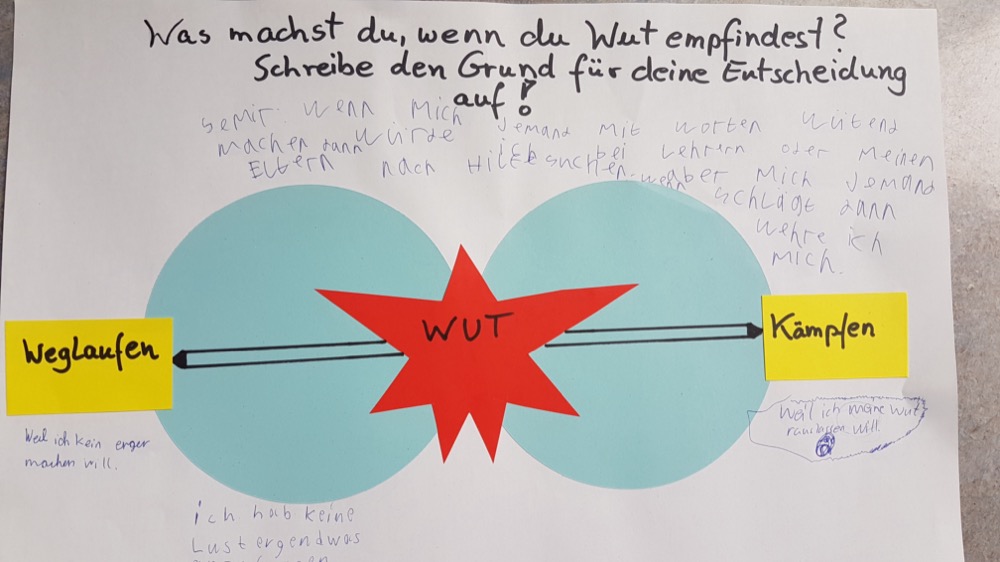 Was machst du, wenn du Wut empfindest?
Schreibe den Grund für deine Entscheidung
auf!
Semir wenn Mich Jemand mit worten wütend
machen dann würde ich bei Lehrern oder Meinen
Eltern nach Hilfe suchen. wenn aber Mich Jemand
schlägt dann
wehre ich
Mich.
WUT
Weglaufen
Kämpfen
Weil ich kein erger
machen will.
Weil ich meine wut
rauslassen will.
ich hab keine
Lust ergendwas